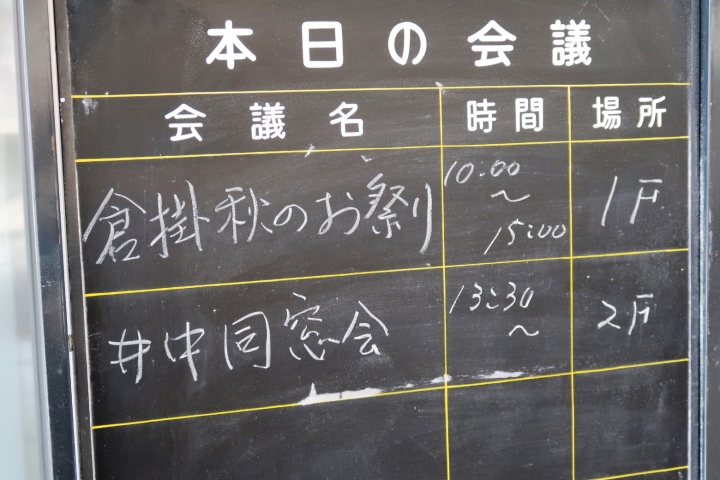 本日の会議
会議名 時間 場所
倉掛秋のお祭り 10:00 〜 15:00 1F
井中同窓会 13:30 〜 2F